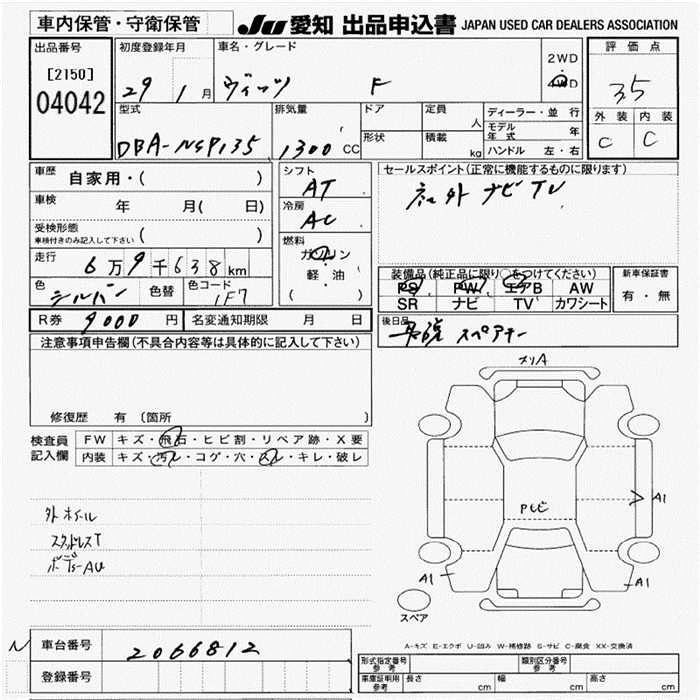 車内保管・守衛保管 JU 愛知 出品申込書 JAPAN USED CAR DEALERS ASSOCIATION
出品番号 初度登録年月 車名・グレード 評価点
[2150] 2WD
04042 29 1月 ヴィッツ F 4WD 3.5
型式 排気量 ドア 定員 人 ディーラー・並行 外装 内装
モデル年式 年
DBA-NSP135 1300 CC 形状 積載 kg ハンドル 左・右 C C
車歴 自家用・( ) シフト AT セールスポイント(正常に機能するものに限ります)
車検 年 月( 日) 冷房 AC 社外 ナビ TV
受検形態
車検付きのみ記入して下さい ( ) 燃料
走行 6万9千638km ガソリン
軽・油
( )
装備品(純正品に限り○をつけてください) 新車保証書
色 シルバー 色替 色コード 1F7
PS PW エアB AW 有・無
SR ナビ TV カワシート
R券 9000 円 名変通知期限 月 日
後日品 スペアキー
注意事項申告欄(不具合内容等は具体的に記入して下さい)
メリA
修復歴 有 〔箇所 〕
検査員 FW キズ・飛石・ヒビ割・リペア跡・X要
記入欄 内装 キズ・汚レ・コゲ・穴・スレ・キレ・破レ
A1
外ホイール
スタッドレスT
A1 A1
スペア
車台番号 2066812
A-キズ E-エクボ U-凹み W-補修跡 S-サビ C-腐食 XX-交換済
登録番号
型式指定番号 参考 類別区分番号 参考
車庫証明用 参考 長さ cm 幅 cm 高さ cm